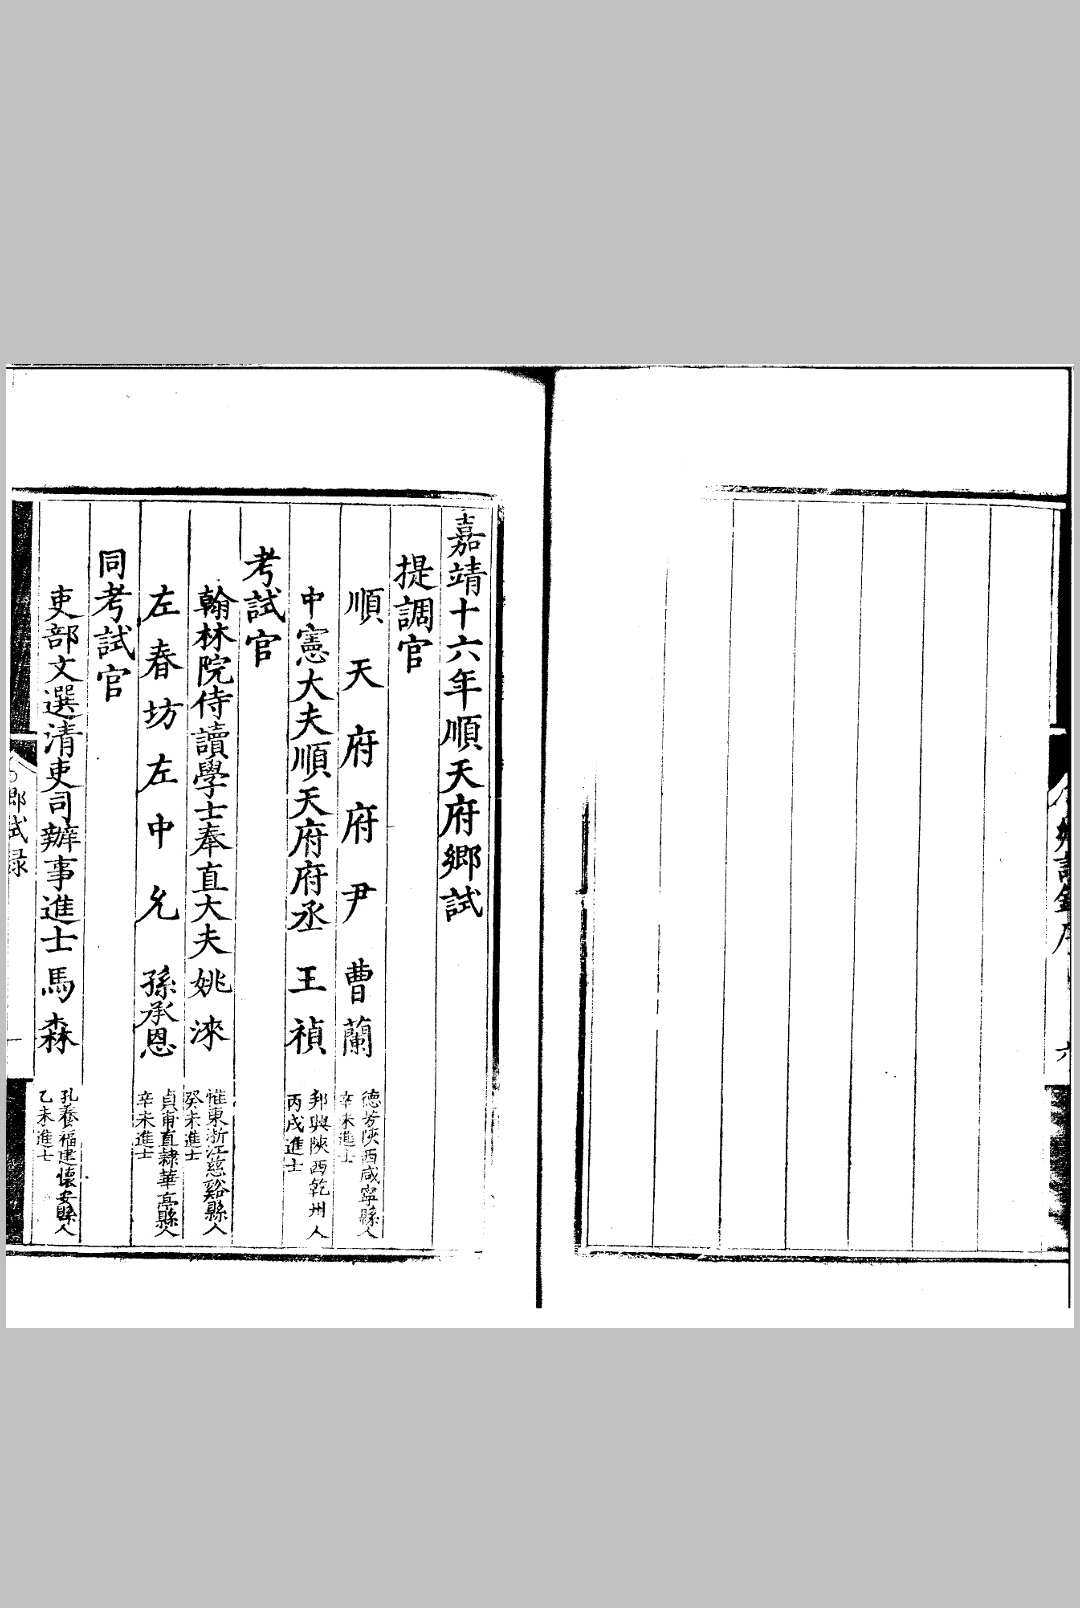 鄉試錄序
六
嘉靖十六年順天府鄉試
提調官
順天府府尹曹蘭 德芳陝西咸寧縣人 辛未進士
中憲大夫順天府府丞王禎 邦興陝西乾州人 丙戌進士
考試官
翰林院侍讀學士奉直大夫姚淶 惟東浙江慈谿縣人 癸未進士
左春坊左中允孫承恩 貞甫直隸華亭縣人 辛未進士
同考試官
吏部文選清吏司辦事進士馬森 孔養福建懷安縣人 乙未進士
鄉試録
一